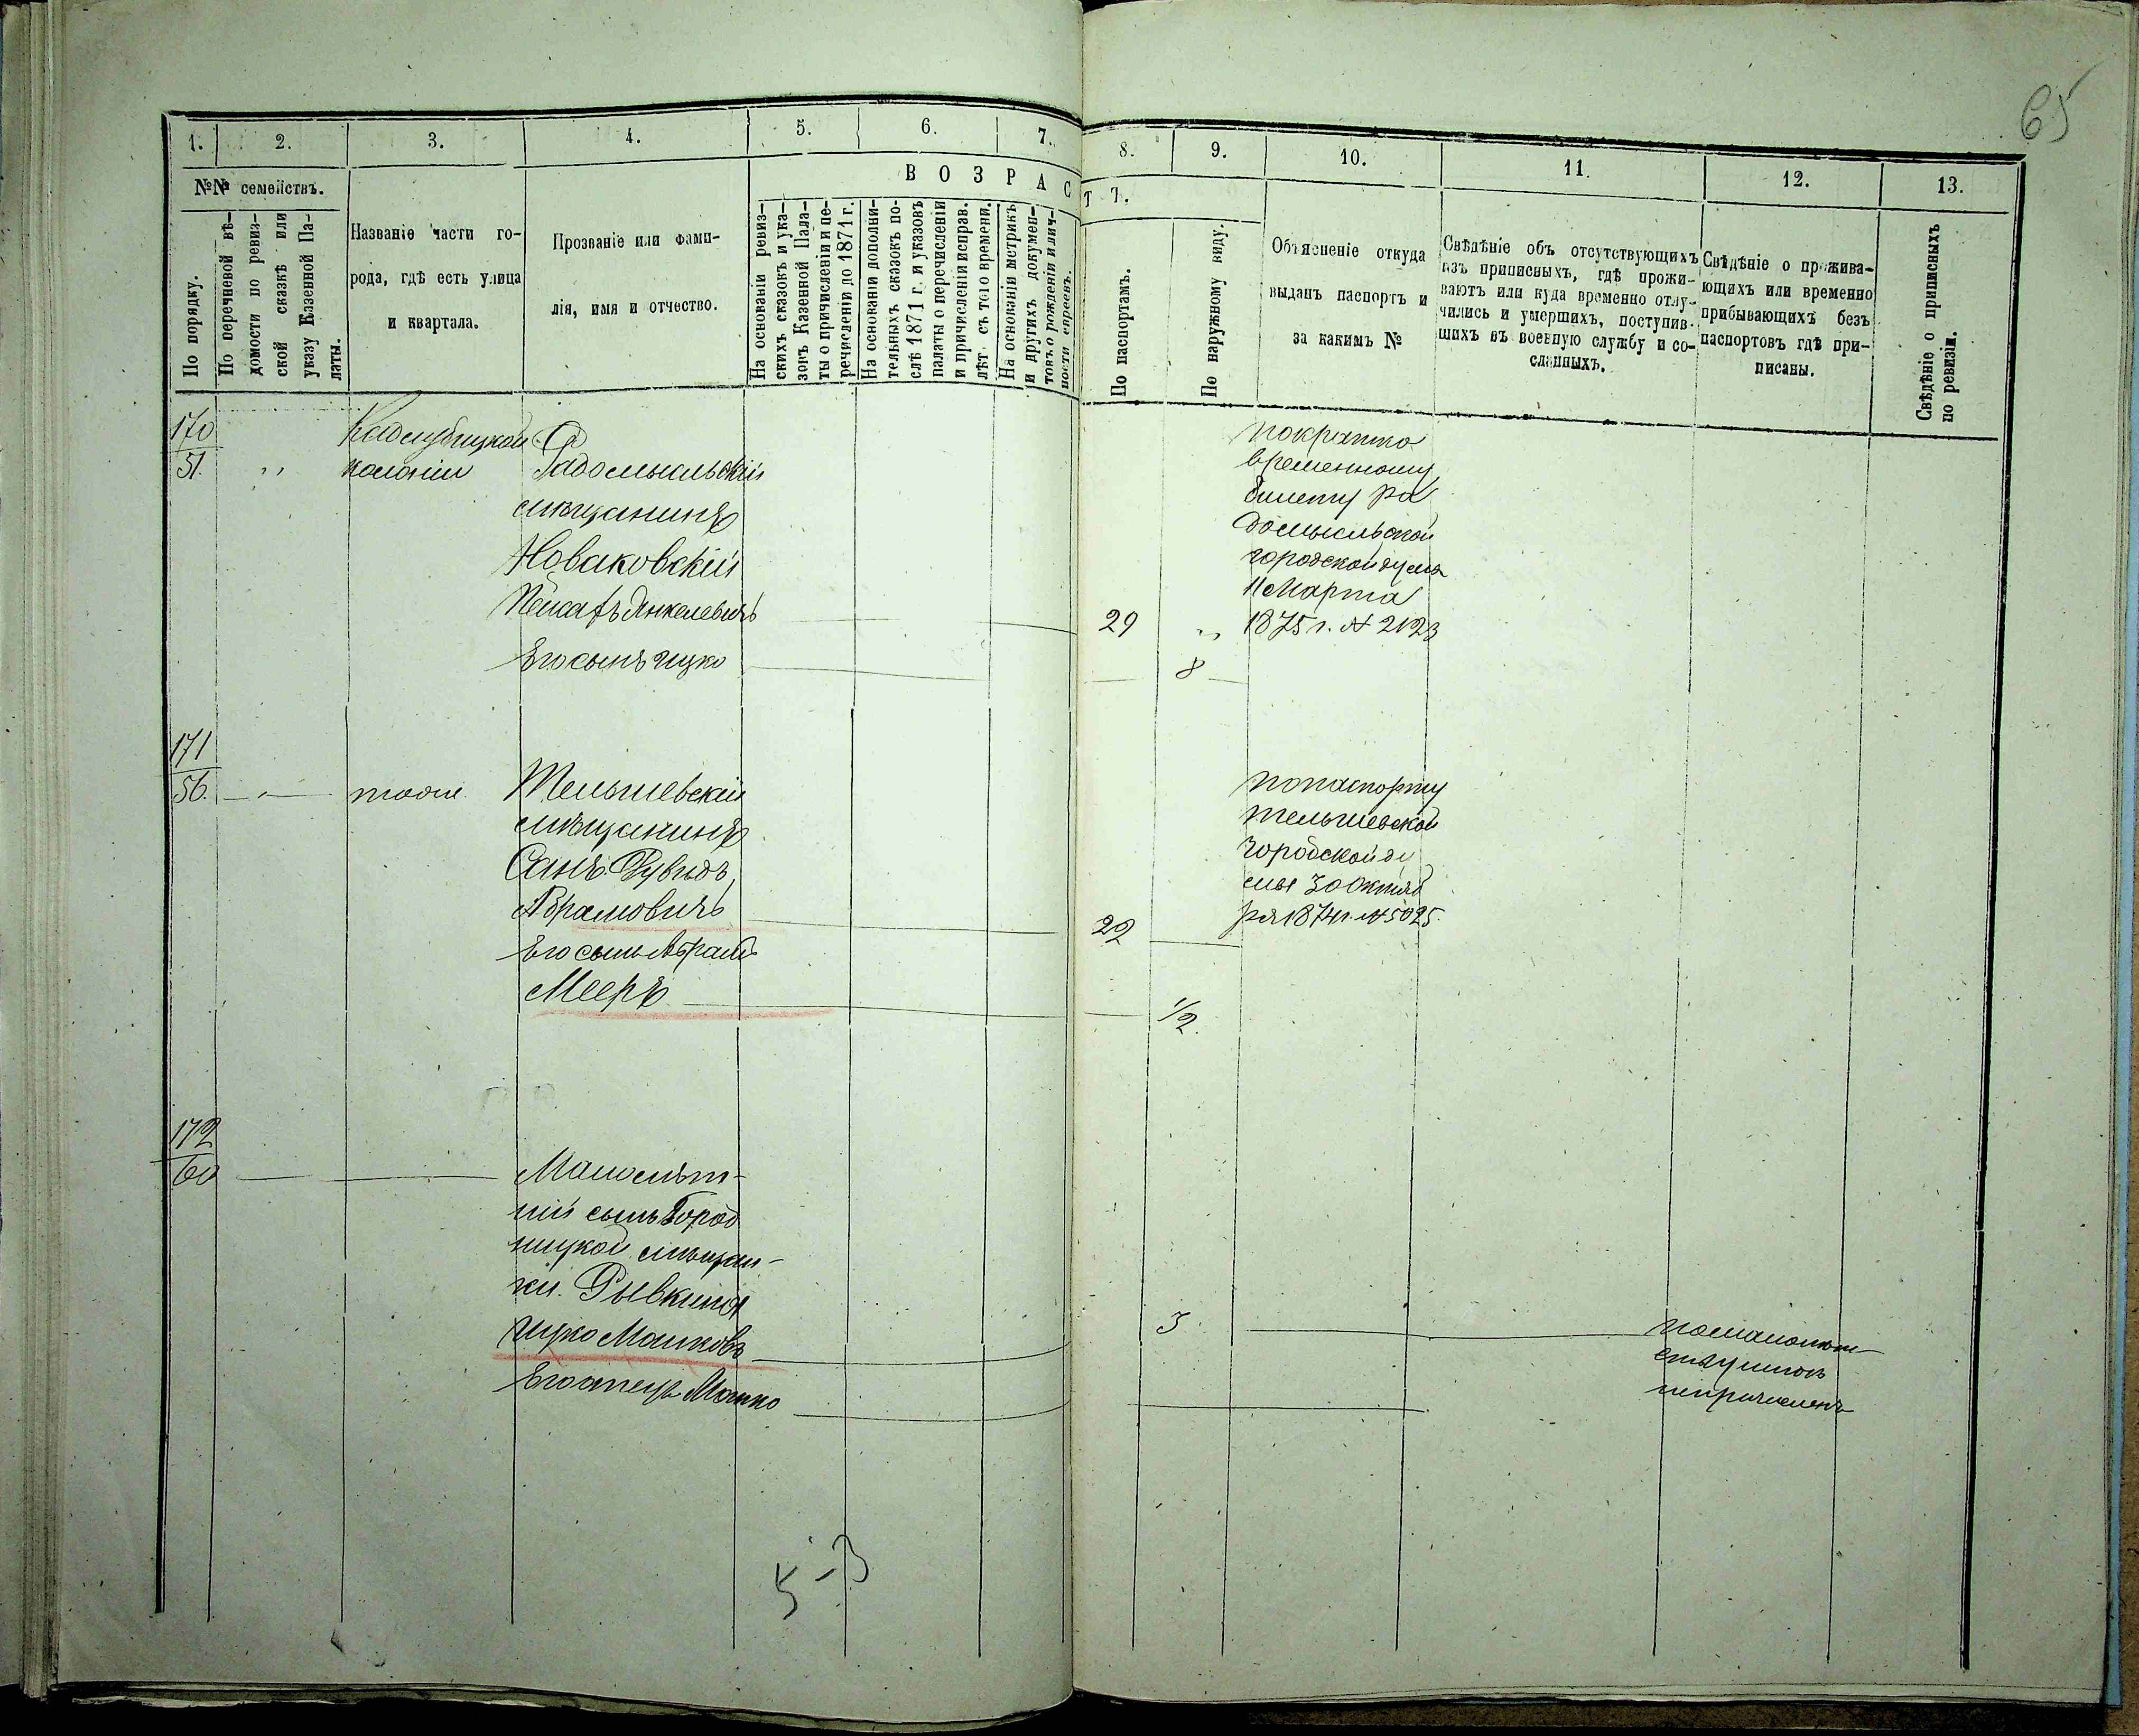 65
1. 2. 3. 4. 5. 6. 7. 8. 9. 10. 11. 12. 13.
№№ семействъ.
По порядку.
По перечневой вѣ-
домости по ревиз-
ской сказкѣ или
указу Казенной Па-
латы.
Названіе части го-
рода, гдѣ есть улица
и квартала.
Прозваніе или фами-
лія, имя и отчество.
ВОЗРАСТЪ.
На основаніи ревиз-
скихъ сказокъ и ука-
зовъ Казенной Пала-
ты о причисленіи и пе-
речисленіи до 1871 г.
На основаніи дополни-
тельныхъ сказокъ по-
слѣ 1871 г. и указовъ
палаты о перечисленіи
и причисленіи исправ.
лѣт съ того времени.
На основаніи метрикъ
и другихъ докумен-
товъ о рожденіи и лич-
ности евреевъ.
По паспортамъ.
По наружному виду.
Объясненіе откуда
выданъ паспортъ и
за какимъ №
Свѣдѣніе объ отсутствующихъ
изъ приписныхъ, гдѣ прожи-
ваютъ или куда временно отлу-
чились и умершихъ, поступив-
шихъ въ военную службу и со-
сланныхъ.
Свѣдѣніе о прожива-
ющихъ или временно
прибывающихъ безъ
паспортовъ гдѣ при-
писаны.
Свѣдѣніе о приписныхъ
по ревизіи.
170
51.
колоніи
Радомысльскій
мѣщанинъ
Новаковскій
Янкелевичъ
29
Его сынъ Ицко
8
временному
билету Ра
домысльской
городской думы
11 Марта
1875 г. № 2123
171
56.
тоже
Тельшевскій
мѣщанинъ
Рувидъ
Абрамовичъ
22
Его сынъ Абрамъ
Мееръ
1/2
по паспорту
Тельшевской
городской ду
мы 30 Октяб
ря 1874 г. № 5025.
172
60
Малолѣт-
ній сынъ Город
ницкой мѣщан-
ки Рывкинъ
Ицко Мошковъ
3
Его отецъ Мошко
по малолѣт
непричисленъ
5-3